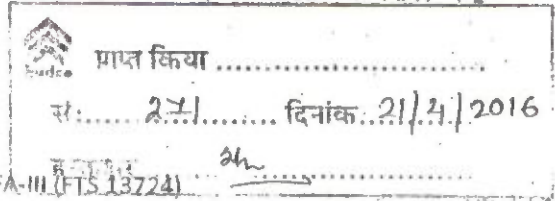 hudco
प्राप्त किया ..............................
सं:..... 271 ......... दिनांक..21/4/2016
FA-III (FTS 13724)